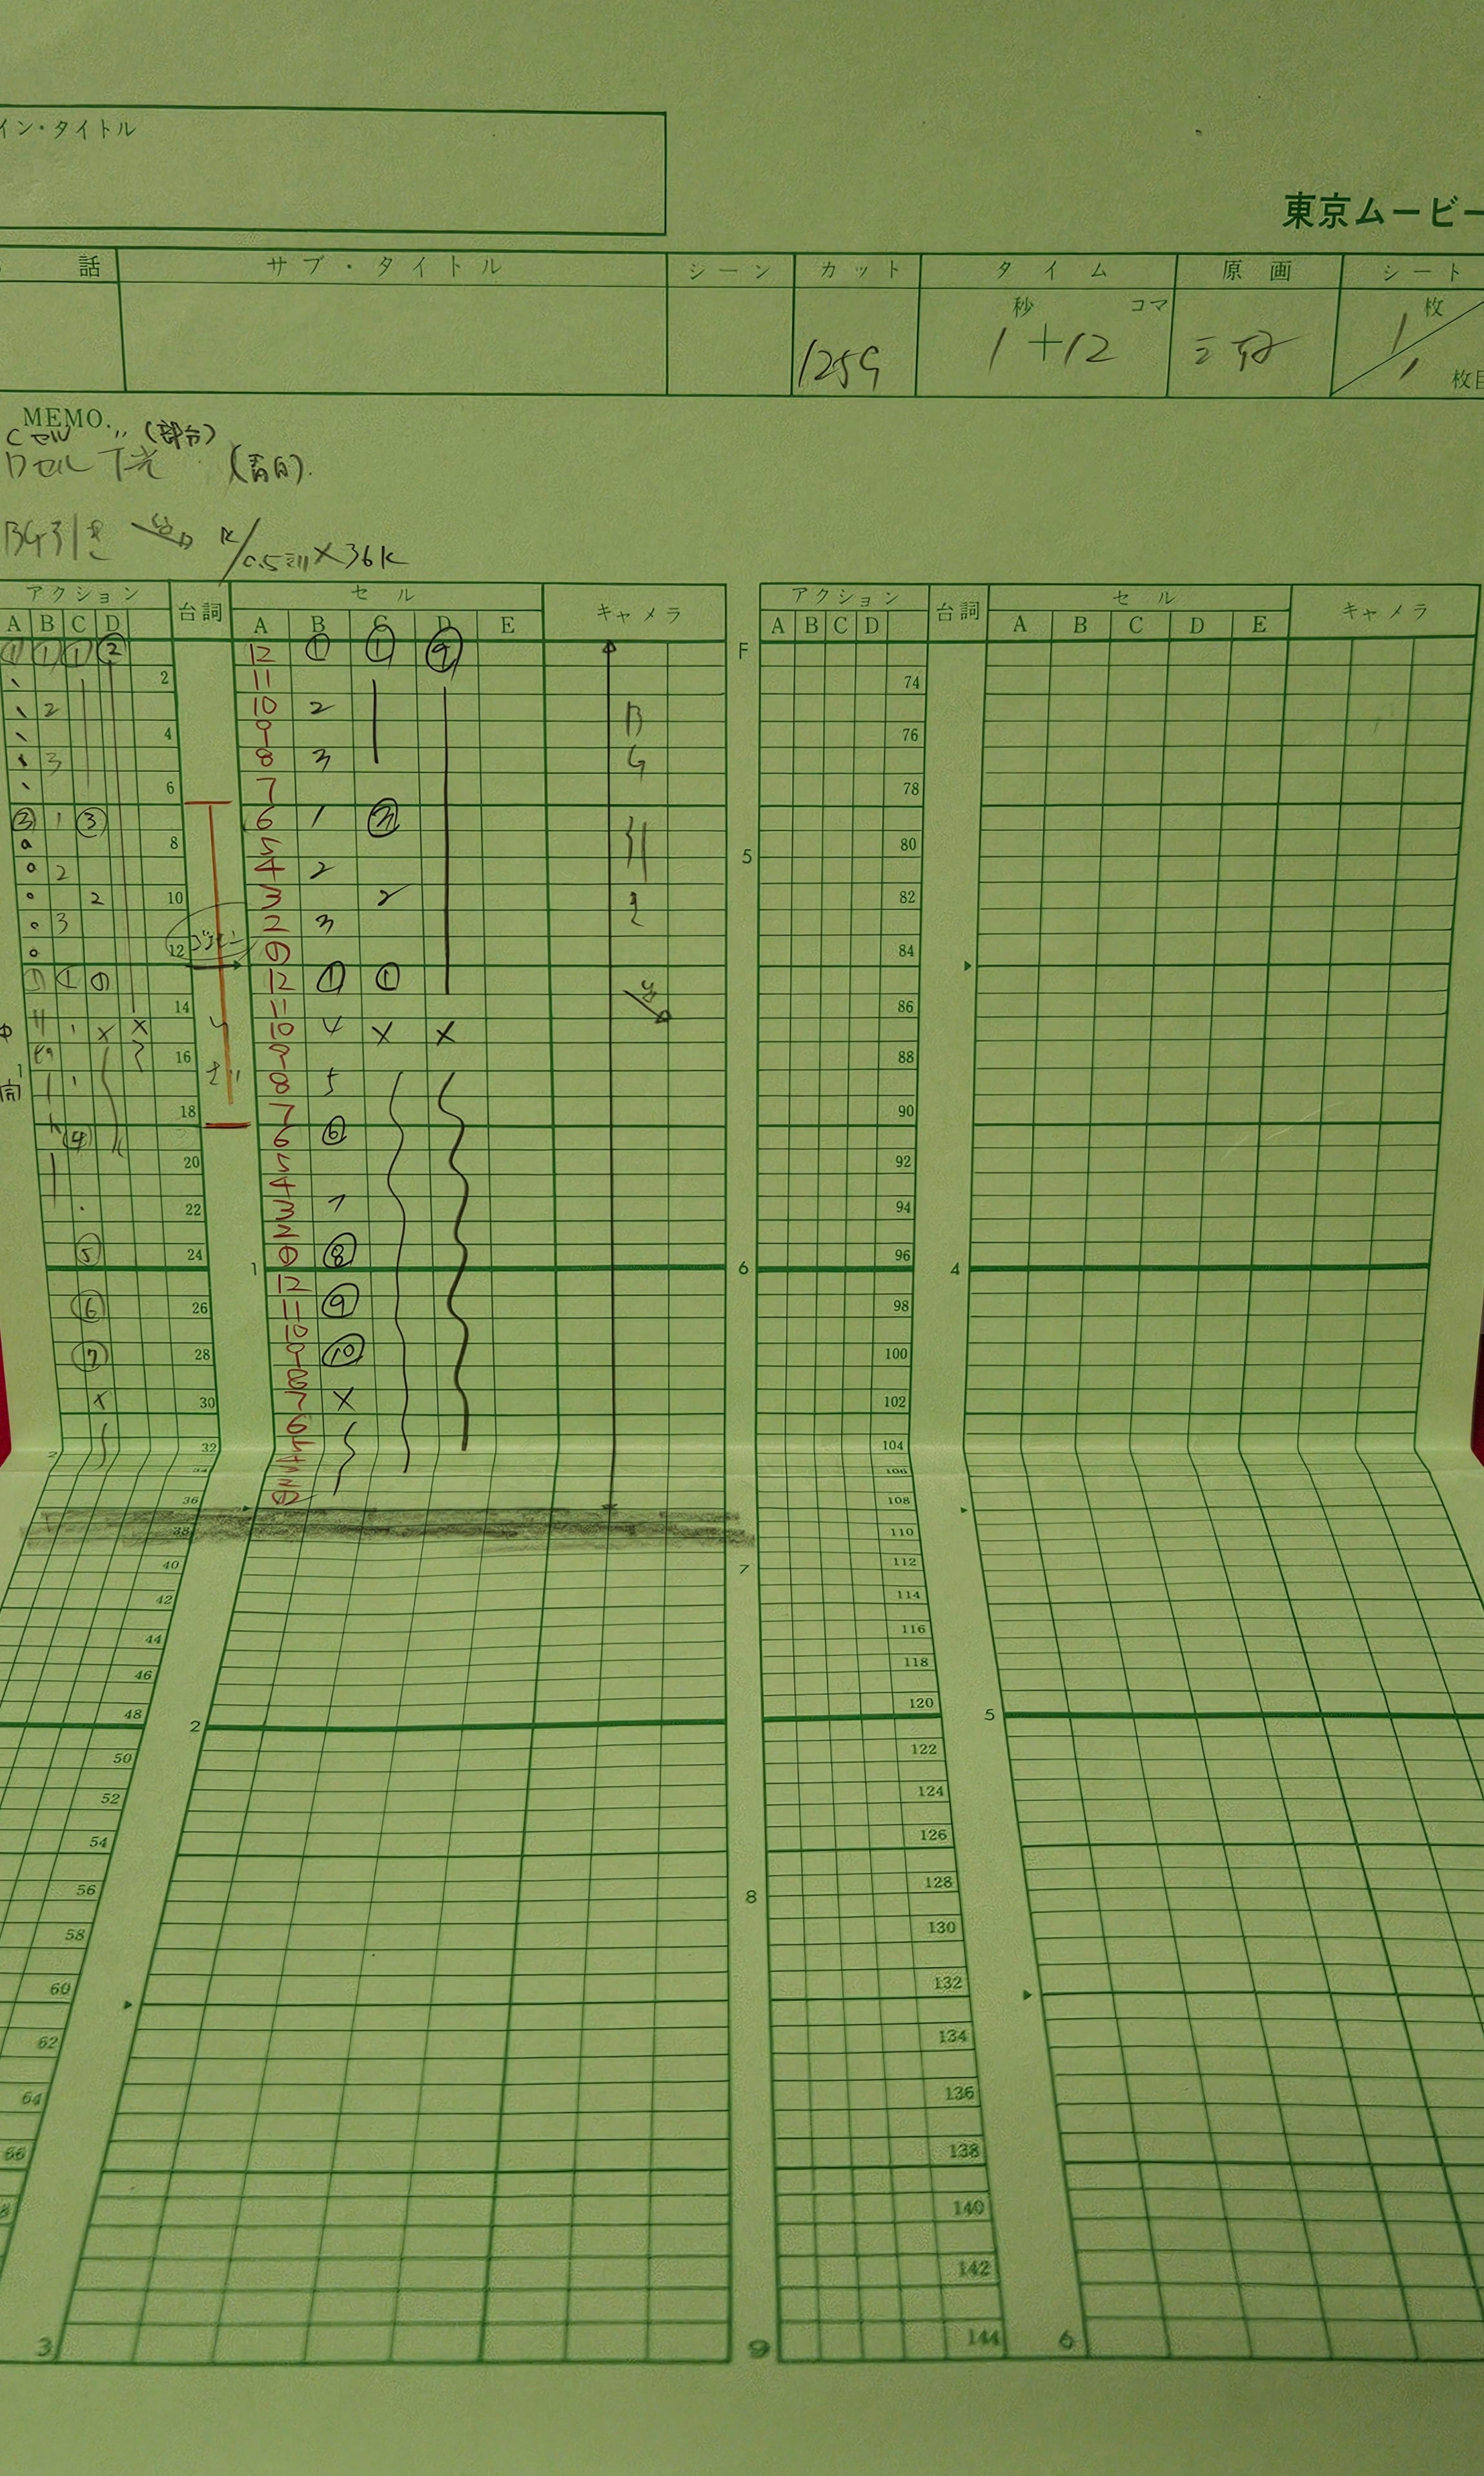 イン・タイトル
東京ムービー
話 サブ・タイトル シーン カット タイム 原画 シート
秒 コマ 枚
1259 1+12 1/1
枚目
MEMO.
Cセル 〃 (部分)
Dセル T光
BG引き K/0.5ミリ×36K
アクション 台詞 セル キャメラ アクション 台詞 セル キャメラ
A B C D A B C D E F A B C D A B C D E
① ① ① ② 12 ① ① ②
2 11 74
2 10 2 B
4 9 76
3 8 3 G
6 7 78
③ 1 ③ 6 1 ③ 引
8 5 5 80
2 4 2
2 10 3 2 82 き
3 2 3
12 ① 84
① ① ① 12 ① ①
14 11 86
中 × × 10 4 × ×
16 9 88
8 5
18 7 90
④ 6 ⑥
20 5 92
4
22 3 7 94
2
⑤ 24 ① ⑧ 96
1 6 4
12
⑥ 26 11 ⑨ 98
10
⑦ 28 9 ⑩ 100
8
× 30 7 × 102
6
32 5 104
34 106
36 108
38 110
40 7 112
42 114
44 116
46 118
48 120
2 5
50 122
52 124
54 126
56 8 128
58 130
60 132
62 134
64 136
66 138
140
142
144
3 9 6